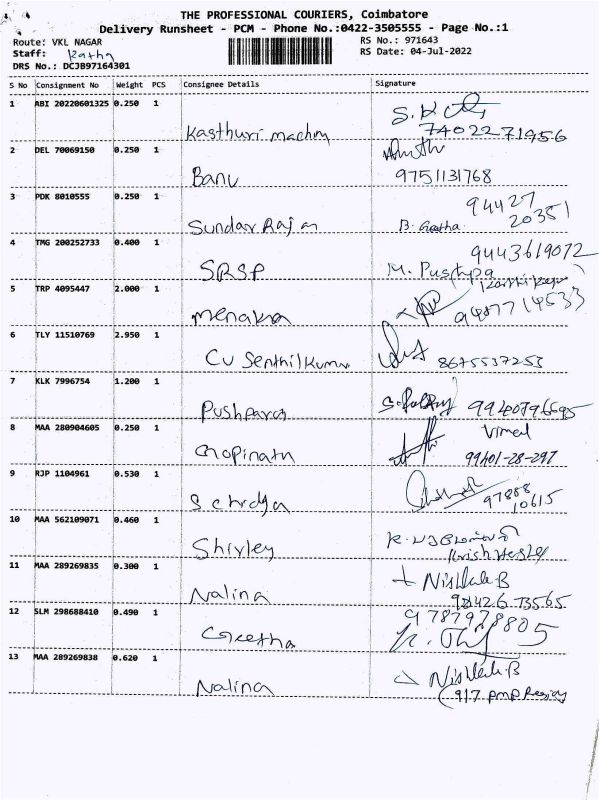 THE PROFESSIONAL COURIERS, Coimbatore
Delivery Runsheet - PCM - Phone No.:0422-3505555 - Page No.:1
Route: VKL NAGAR RS No.: 971643
Staff: RS Date: 04-Jul-2022
DRS No.: DCJB97164301
S No Consignment No Weight PCS Consignee Details Signature
1 ABI 20220601325 0.250 1
Kasthuri 7402271956
2 DEL 70069150 0.250 1
Banu 9751131768
3 PDK 8010555 0.250 1 94427
Sundar Rajan B. Geetha 20351
4 TMG 200252733 0.400 1 9443619072
SRSP M. Pushpa
5 TRP 4095447 2.000 1
Menaka
6 TLY 11510769 2.950 1
CV Senthil Kumar 8675537253
7 KLK 7996754 1.200 1
Pushparaj
8 MAA 280904605 0.250 1 Vimal
Gopinath 99401-28-297
9 RJP 1104961 0.530 1 97888
10615
10 MAA 562109071 0.460 1
Shirley
11 MAA 289269835 0.300 1
Nalina
12 SLM 298688410 0.490 1
Geetha
13 MAA 289269838 0.620 1
Nalina